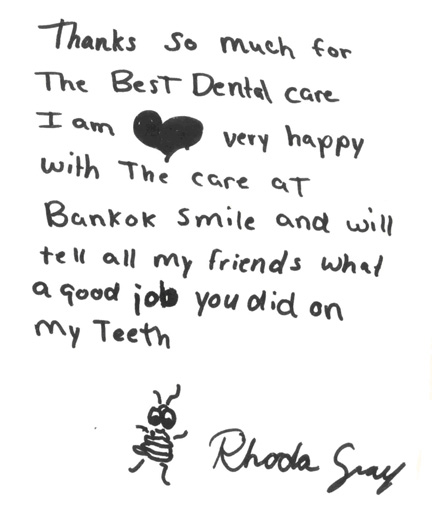 Thanks so much for
The Best Dental care
I am very happy
with The care at
Bankok smile and will
tell all my friends what
a good job you did on
my Teeth
Rhoda Gray